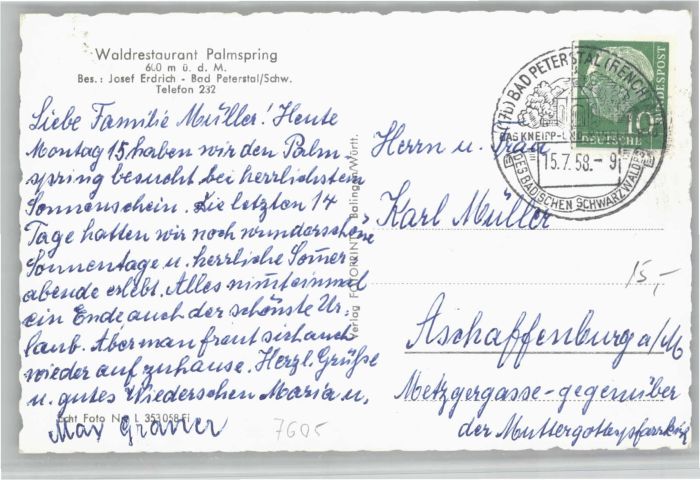 Waldrestaurant Palmspring
600 m ü. d. M.
Bes.: Josef Erdrich - Bad Peterstal/Schw.
Telefon 232
Liebe Familie Müller! Heute
Montag 15. haben wir den Palm-
spring besucht bei herrlichstem
Sonnenschein. Die letzten 14
Tage hatten wir noch wunderschöne
Sonnentage u. herrliche Somer
abende erlebt. Alles nimt einmal
ein Ende auch der schönste Ur-
laub. Aber man freut sich auch
wieder auf zuhause. Herzl. Grüße
u. gutes Wiedersehen Maria u.
Max
Echt Foto No. L 353058 Ei
7605
Verlag FOTOPRINT Balingen/Württ.
(17b) BAD PETERSTAL (RENCH
DAS KNEIPP-U.
15.7.58.-9
DES BADISCHEN SCHWARZWALDES
10
DEUTSCHE
BUNDESPOST
Herrn u. Frau
Karl Müller
15,-
Aschaffenburg a/M
Metzgergasse-gegenüber
der Muttergottespfarrkirche